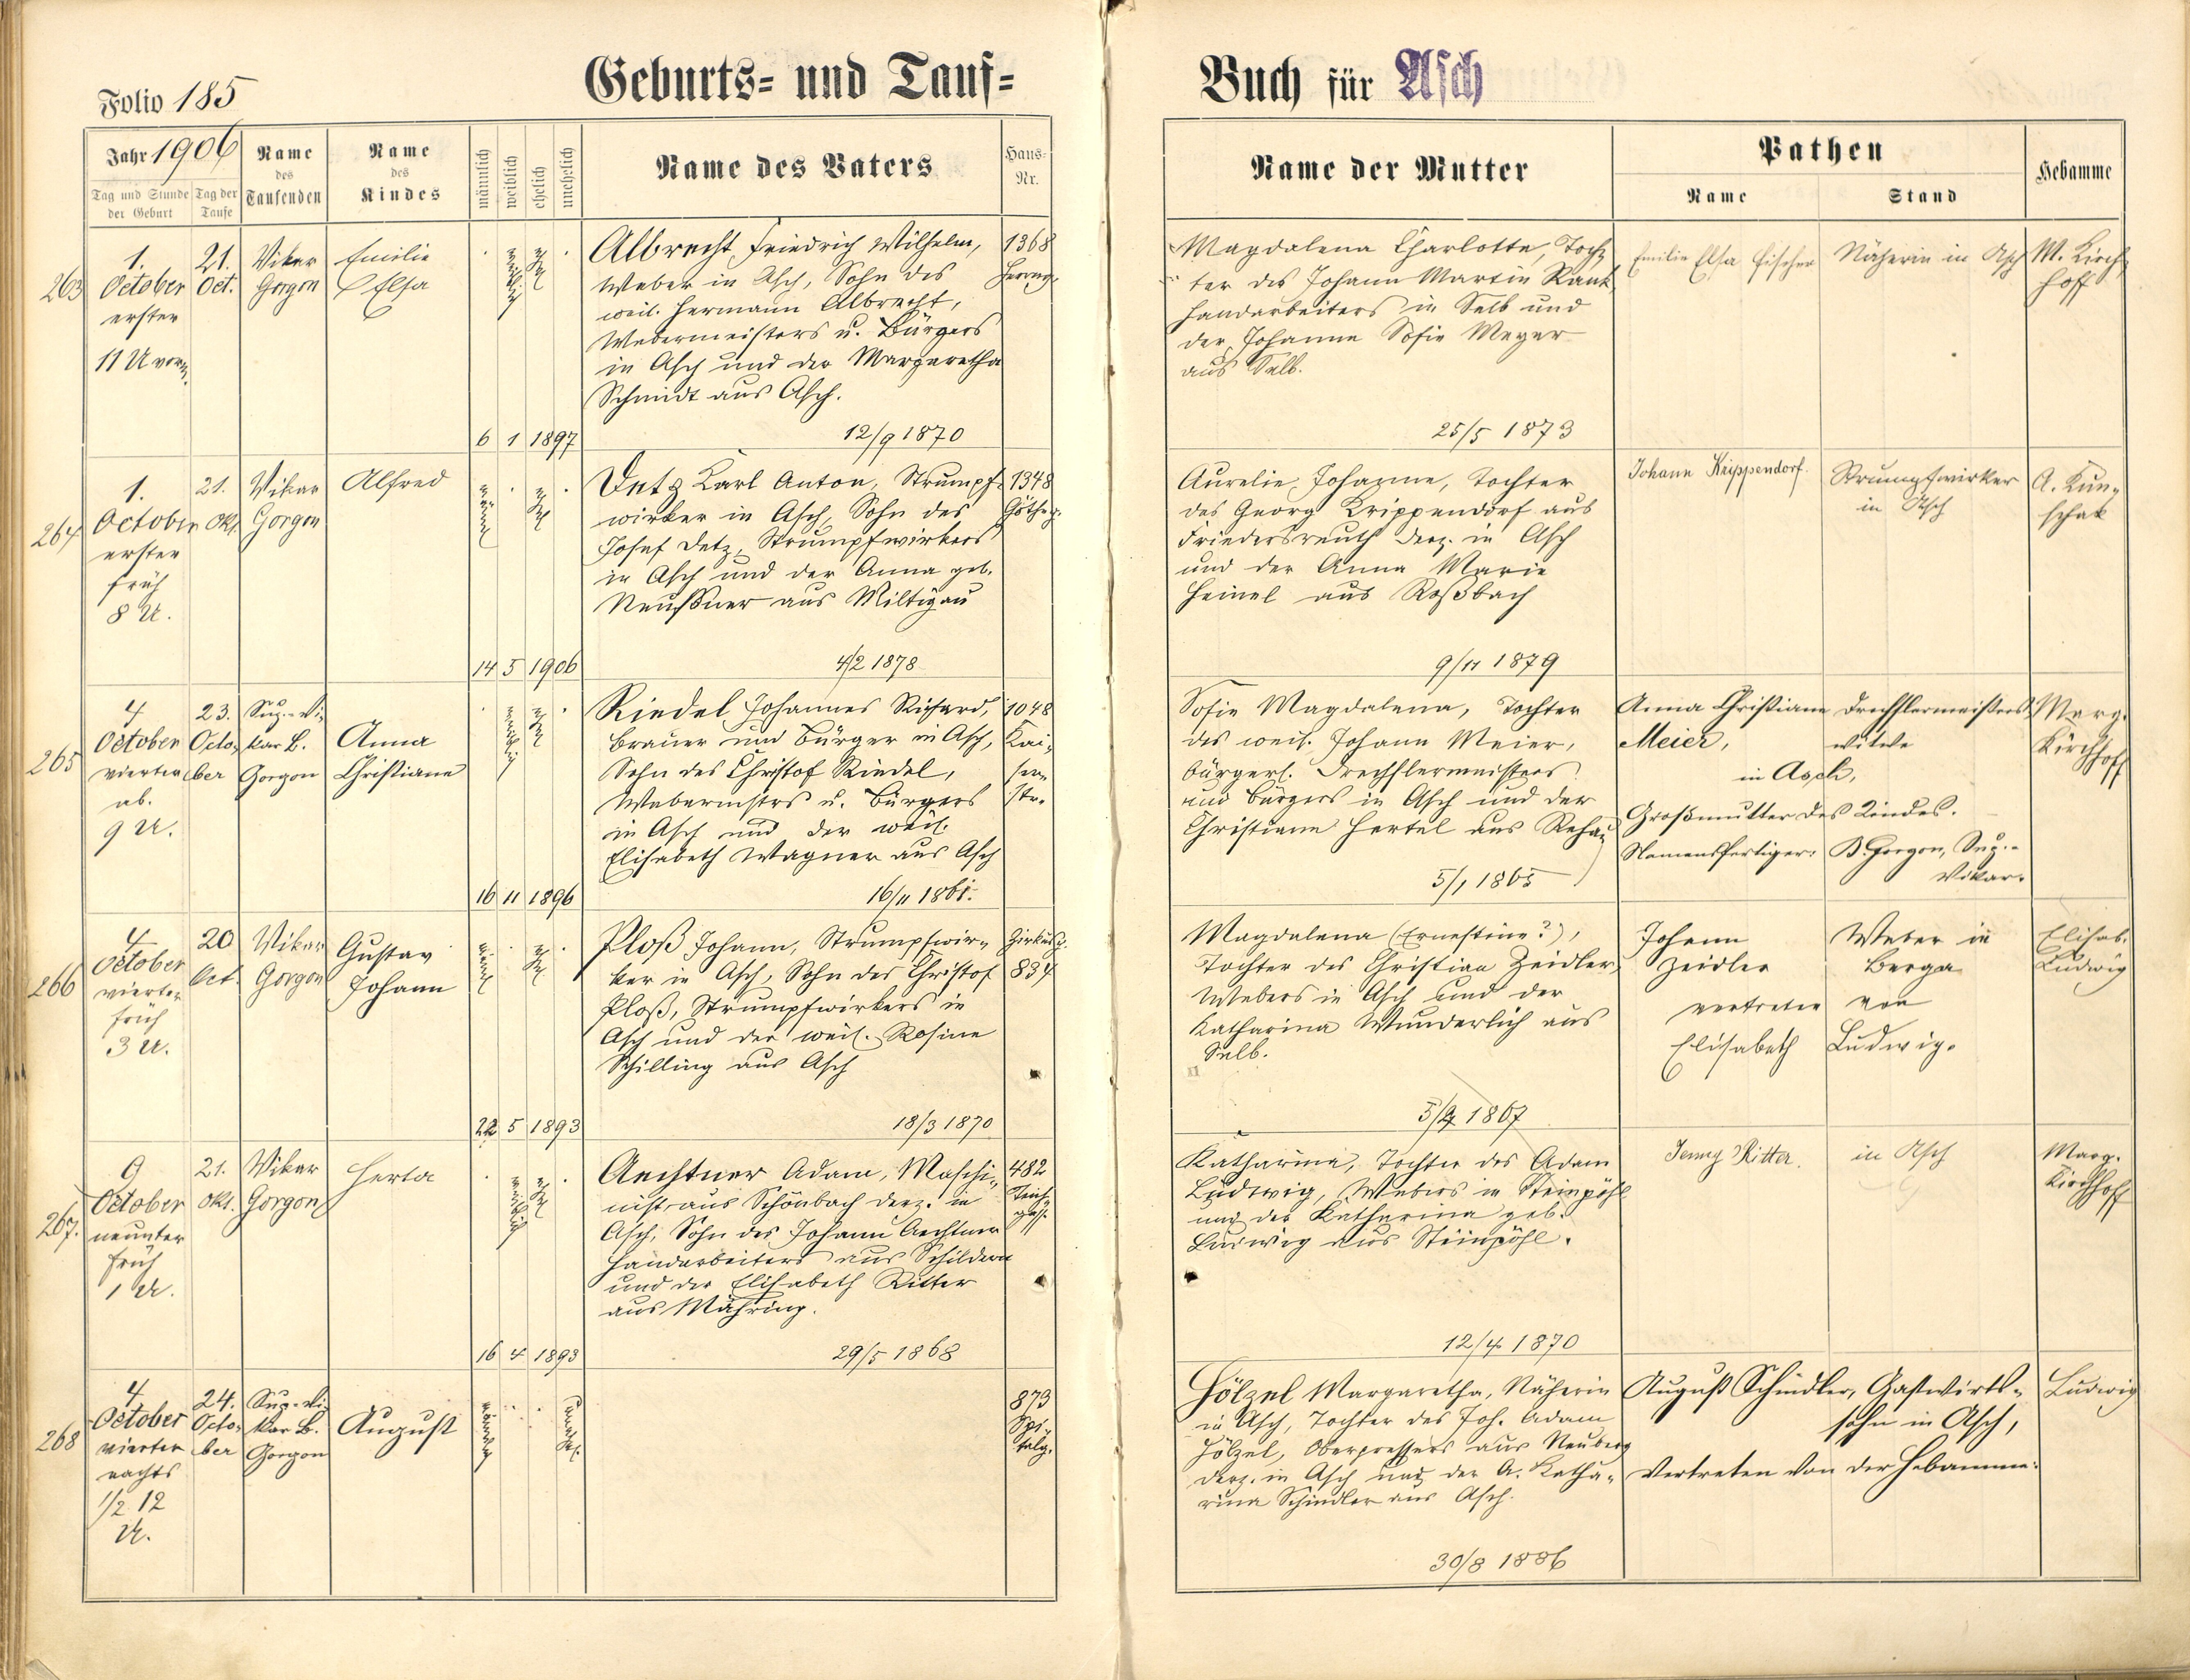 Folio 185
Geburts- und Tauf-
Buch für Asch
Jahr 1906
Tag und Stunde der Geburt
Tag der Taufe
Name des Taufenden
Name des Kindes
männlich
weiblich
ehelich
unehelich
Name des Vaters
Haus-Nr.
Name der Mutter
Pathen
Name
Stand
Hebamme
263
1.
October
erster
11 U vorm.
21.
Oct.
Vikar
Gorgon
Emilie
Elsa
weiblich
ehel
Albrecht Friedrich Wilhelm,
Weber in Asch, Sohn des
weil. Hermann Albrecht,
Webermeisters u. Bürgers
in Asch und der Margaretha
Schmidt aus Asch.
6 1 1897
12/9 1870
1368
Herrng.
Magdalena Charlotte, Toch-
ter des Johann Martin Rank
Handarbeiters in Selb und
der Johanna Sofie Meyer
aus Selb.
25/5 1873
Emilie Elsa Fischer
Näherin in Asch
M. Kirch-
hoff
264
1.
October
erster
früh
8 U.
21.
Okt.
Vikar
Gorgon
Alfred
männl
ehel
Detz Karl Anton, Strumpf-
wirker in Asch, Sohn des
Josef Detz, Strumpfwirkers
in Asch und der Anna geb.
Neußner aus Miltigau
14 5 1906
4/2 1878
1348
Götheg.
Aurelie Johanne, Tochter
des Georg Krippendorf aus
Friedersreuth derz. in Asch
und der Anna Marie
Heinel aus Roßbach
9/11 1879
Johann Krippendorf.
Strumpfwirker
in Asch
A. Kun-
schak
265
4
October
vierter
ab.
9 U.
23.
Octo-
ber
Sup.-Vi-
kar B.
Gorgon
Anna
Christiane
weiblich
ehel
Riedel Johannes Richard,
Brauer und Bürger in Asch,
Sohn des Christof Riedel,
Webermstrs u. Bürgers
in Asch und der weil.
Elisabeth Wagner aus Asch
16 11 1896
16/11 1861.
1048
Kai-
ser-
str.
Sofie Magdalena, Tochter
des weil. Johann Meier,
bürgerl. Drechslermeisters
und Bürgers in Asch und der
Christiane Hertel aus Rehau
5/1 1865
Anna Christiane Drechslermeisters-
Meier, witwe
in Asch,
Großmutter des Kindes.
Namensfertiger: B. Gorgon, Sup.-
Vikar.
Marg.
Kirchhoff
266
4
October
vierter
früh
3 U.
20
Oct.
Vikar
Gorgon
Gustav
Johann
männl
ehel
Ploß Johann, Strumpfwir-
ker in Asch, Sohn des Christof
Ploß, Strumpfwirkers in
Asch und der weil. Rosine
Schilling aus Asch
22 5 1893
18/3 1870
Zirkusg.
834
Magdalena (Ernestine?),
Tochter des Christian Zeidler,
Webers in Asch und der
Katharina Wunderlich aus
Selb.
1867
Johann Weber in
Zeidler Berga
vertreten von
Elisabeth Ludwig.
Elisab.
Ludwig
267.
9
October
neunter
früh
1 U.
21.
Okt.
Vikar
Gorgon
Herta
weiblich
ehel
Aechtner Adam, Maschi-
nist aus Schönbach derz. in
Asch, Sohn des Johann Aechtner
Handarbeiters aus Schildern
und der Elisabeth Ritter
aus Mähring.
16 4 1893
29/5 1868
482
Teich-
gass.
Katharina, Tochter des Adam
Ludwig, Webers in Steinpöhl
und der Katharina geb.
Ludwig aus Steinpöhl.
12/4 1870
Jenny Ritter.
in Asch
Marg.
Kirchhoff
268
4
October
vierter
nachts
1/2 12
U.
24.
Octo-
ber
Sup.-Vi-
kar B.
Gorgon
August
männlich
unehel.
873
Spi-
talg.
Hölzel Margaretha, Näherin
in Asch, Tochter des Joh. Adam
Hölzel, Oberpressers aus Neuberg
derz. in Asch und der A. Katha-
rina Schindler aus Asch.
30/8 1886
August Schindler, Gastwirts-
sohn in Asch,
Vertreten von der Hebamme.
Ludwig